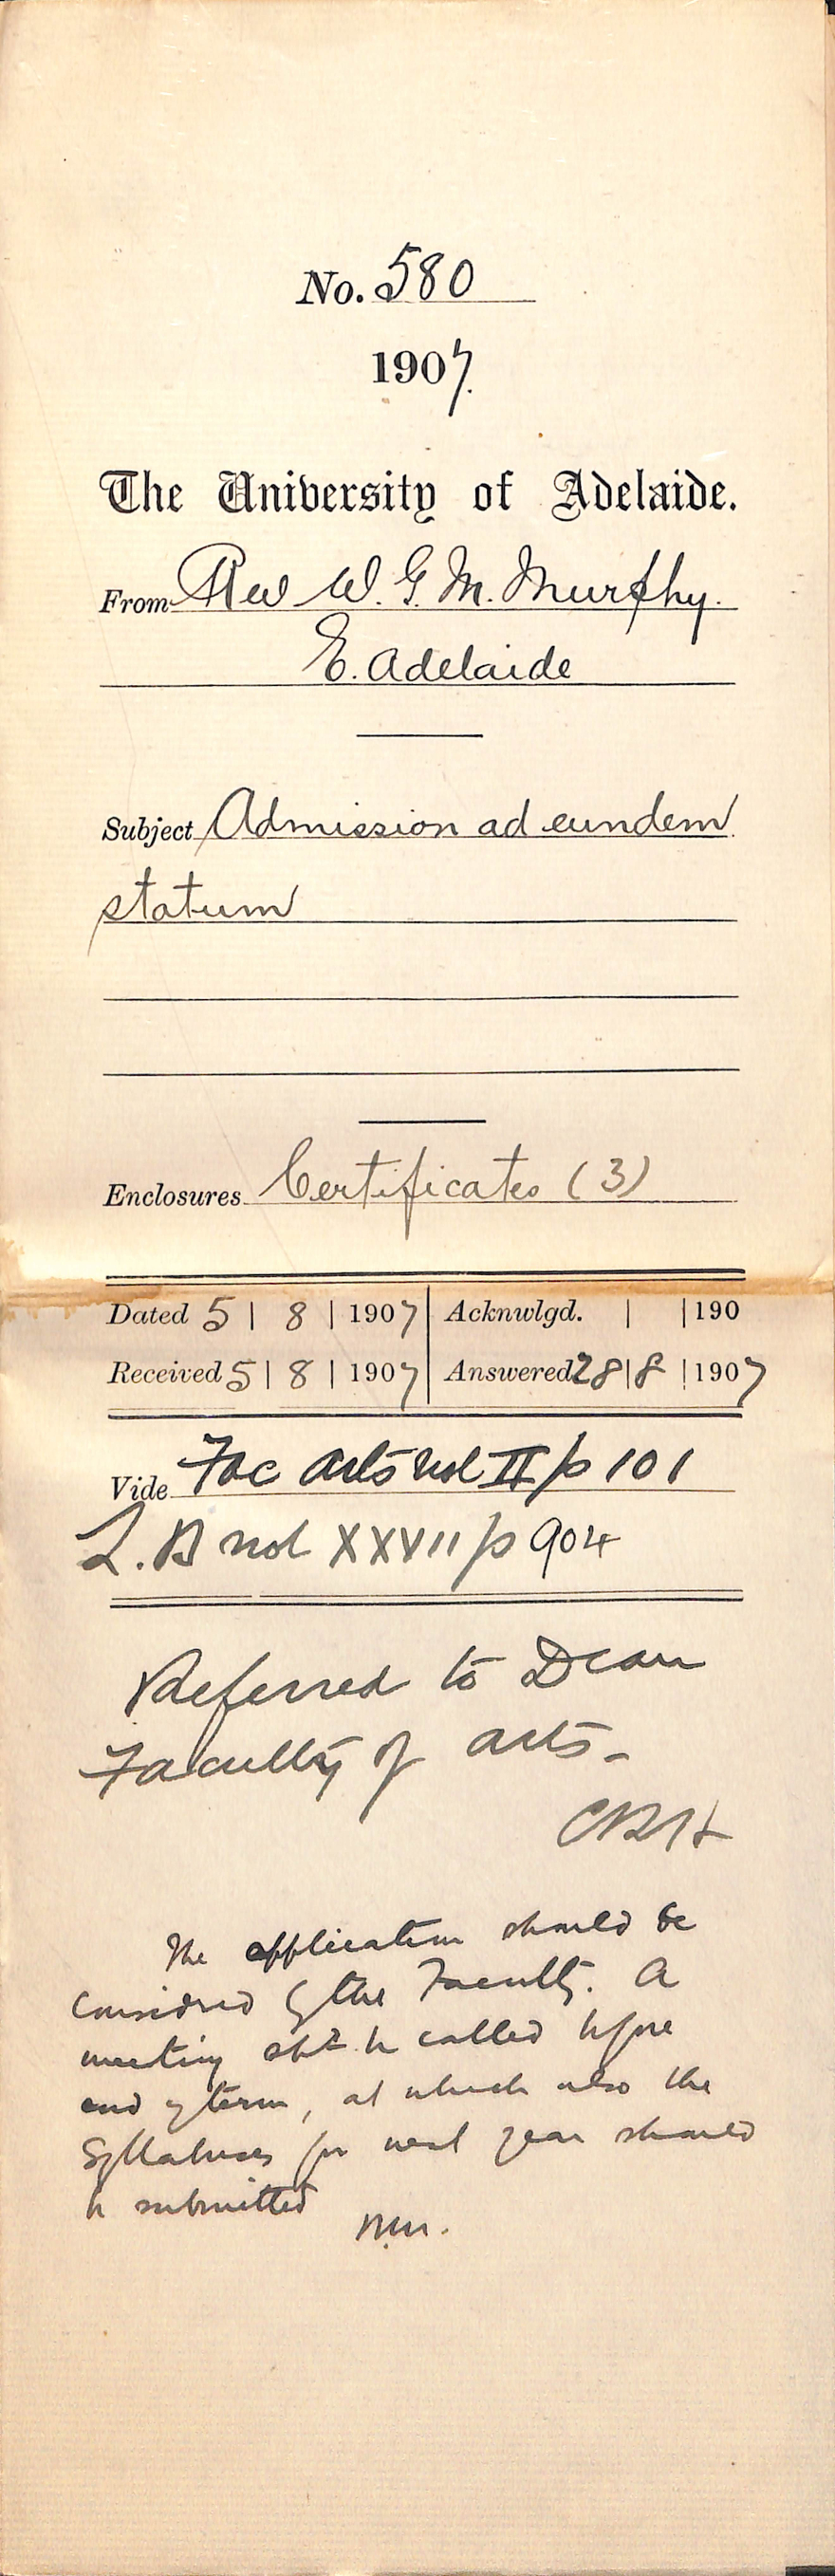 No. 580
1907.
The University of Adelaide.
From Rev W. G. M. Murphy.
E. Adelaide
Subject Admission ad eundem
statum
Enclosures Certificates (3)
Dated 5 | 8 | 1907 Acknwlgd. | | 190
Received 5 | 8 | 1907 Answered 28 | 8 | 1907
Vide Fac Arts vol II p 101
L. B vol XXVII p 904
Referred to Dean
Faculty of Arts -
CRH
The application should be
considered by the Faculty. A
meeting shd. be called before
end of term, at which also the
Syllabuses for next year should
be submitted